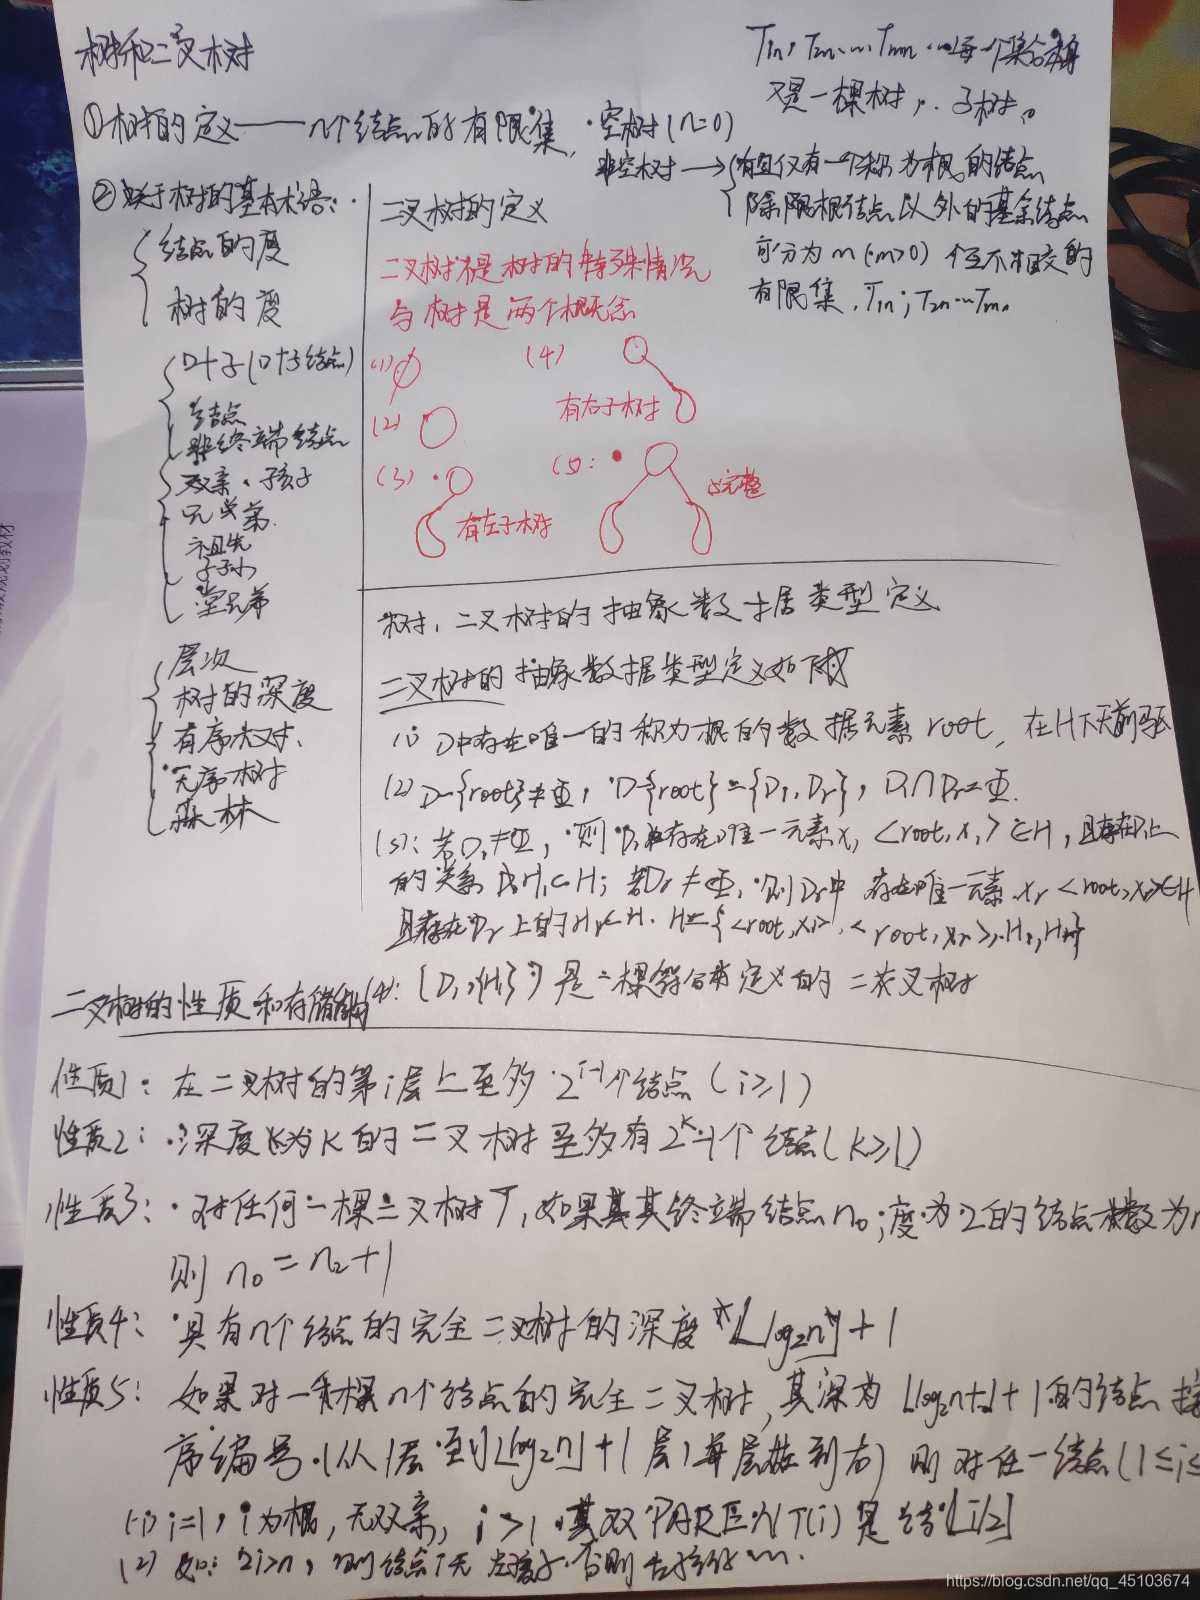 树和二叉树
①树的定义——n个结点的有限集,·空树(n=0)
非空树→{有且仅有一个称为根的结点
除限根结点以外的其余结点
可分为m(m>0)个互不相交的
有限集.T1n;T2n…Tmn
T1n,T2n…Tmn…每一个集合本身
又是一棵树,..子树。
②关于树的基本术语:
结点的度
树的度
叶子(叶子结点)
结点
非终端结点
双亲·孩子
兄弟
祖先
子孙
堂兄弟
层次
树的深度
有序树
无序树
森林
二叉树的定义
二叉树不是树的特殊情况
与树是两个概念
(1)
(2)
(3)
有左子树
(4)
有右子树
(5):
完整
树,二叉树的抽象数据类型定义
二叉树的抽象数据类型定义如下
(1) D中存在唯一的称为根的数据元素root,在H下无前驱
(2) D-{root}≠Φ, D-{root}={D1,Dr}, D1∩Dr=Φ.
(3):若D1≠Φ,则D1中存在唯一元素x1 <root,x1>∈H,且存在D1上
的关系H1⊂H;若Dr≠Φ,则Dr中存在唯一元素xr <root,xr>∈H
且存在Dr上的Hr⊂H. H={<root,x1>,<root,xr>,H1,Hr}
(4):(D1,{H1})是一棵符合本定义的二叉树
二叉树的性质和存储结构
性质1:在二叉树的第i层上至多2^{i-1}个结点(i≥1)
性质2:深度为K的二叉树至多有2^K-1个结点(k≥1)
性质3:对任何一棵二叉树T,如果其终端结点n0;度为2的结点数为n
则n0=n2+1
性质4:具有n个结点的完全二叉树的深度⌊log2n⌋+1
性质5:如果对一棵n个结点的完全二叉树,其深为⌊log2n⌋+1的结点按
序编号(从1层到⌊log2n⌋+1层,每层从左到右)则对任一结点(1≤i≤
(1) i=1, i为根,无双亲, i>1,其双亲PARENT(i)是结⌊i/2⌋
(2) 如:2i>n,则结点i无左孩子.否则左孩子
https://blog.csdn.net/qq_45103674